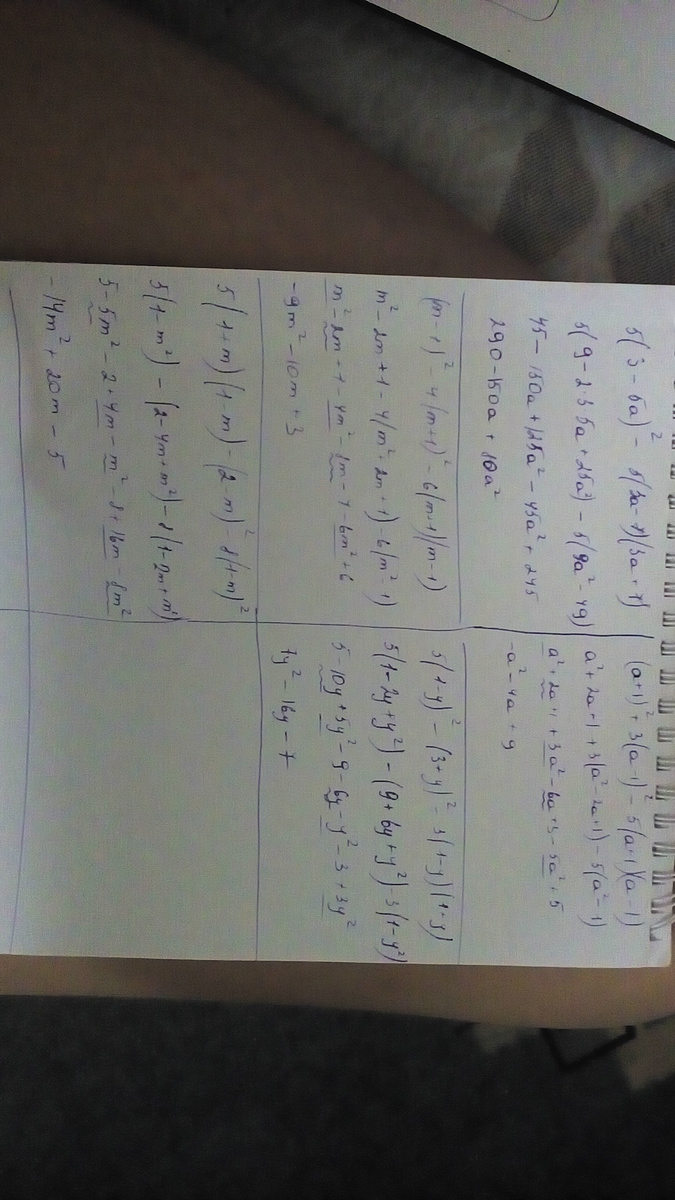 5(3-5a)² - 5(3a-7)(3a+7)
5(9-2·3·5a+25a²) - 5(9a²-49)
45-150a+125a²-45a²+245
290-150a+80a²
(a+1)²+3(a-1)²-5(a+1)(a-1)
a²+2a+1+3(a²-2a+1)-5(a²-1)
a²+2a+1+3a²-6a+3-5a²+5
-a²-4a+9
(m-1)²-4(m+1)²-6(m+1)(m-1)
m²-2m+1-4(m²+2m+1)-6(m²-1)
m²-2m+1-4m²-8m-4-6m²+6
-9m²-10m+3
5(1-y)²-(3+y)²-3(1-y)(1+y)
5(1-2y+y²)-(9+6y+y²)-3(1-y²)
5-10y+5y²-9-6y-y²-3+3y²
7y²-16y-7
5(1+m)(1-m)-(2-m)²-8(1-m)²
5(1-m²)-(2-4m+m²)-8(1-2m+m²)
5-5m²-2+4m-m²-8+16m-8m²
-14m²+20m-5